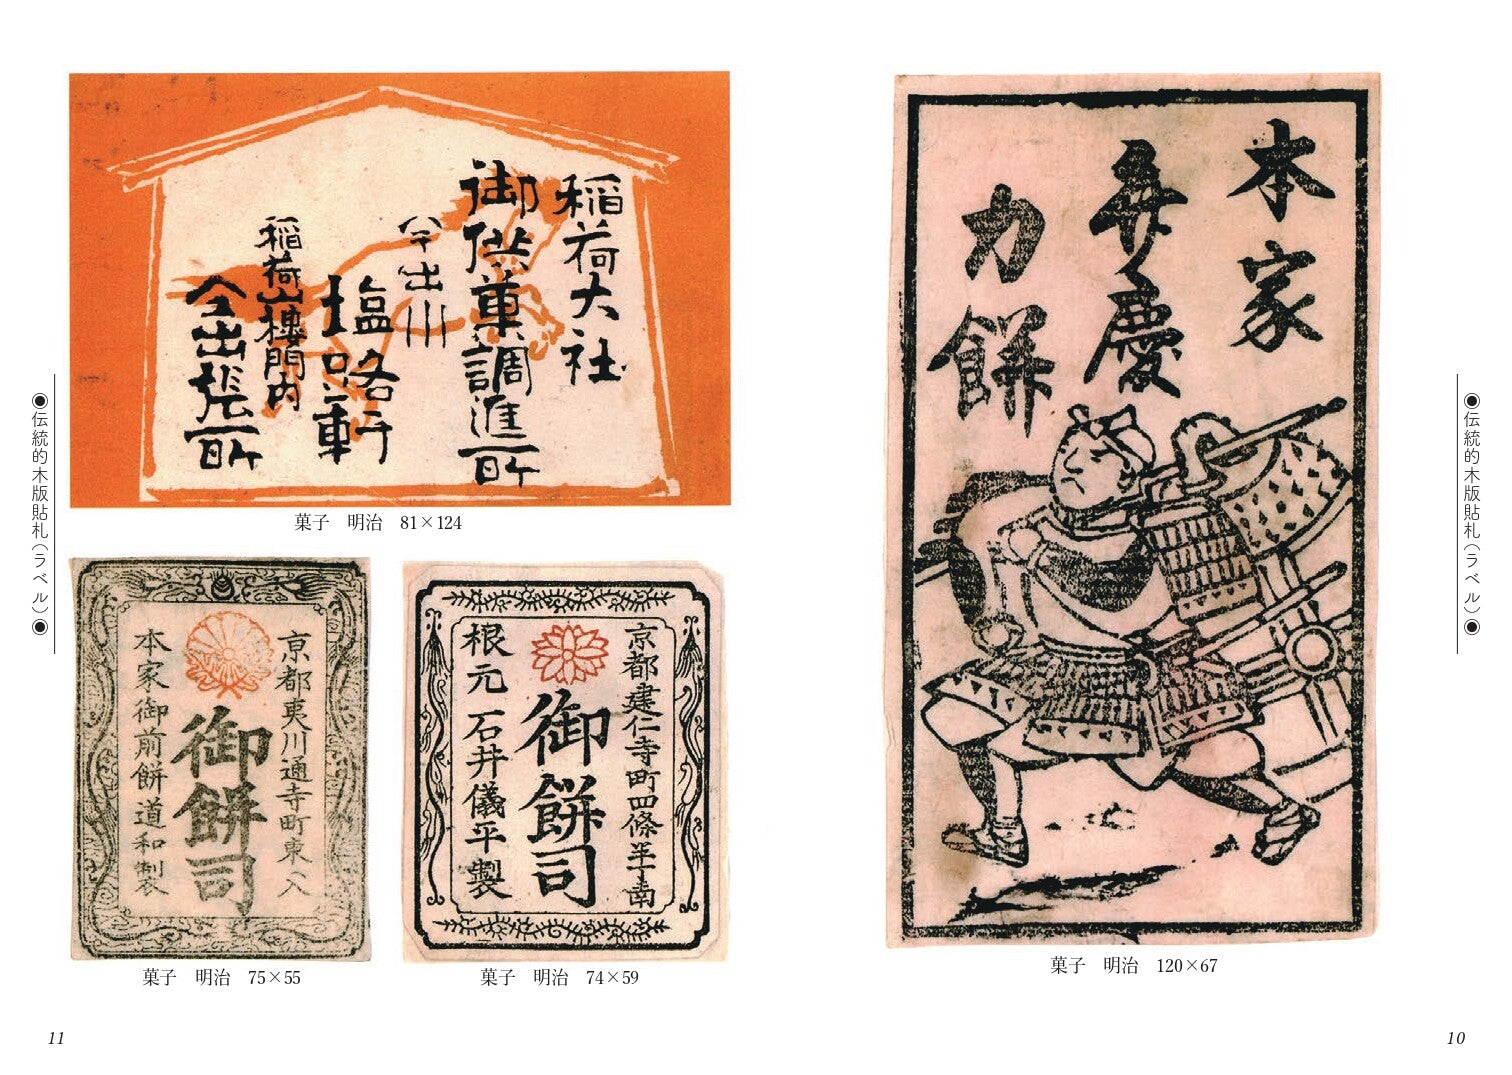 ◉伝統的木版貼札(ラベル)◉
本家
弁慶
力餅
菓子 明治 120×67
10
稲荷大社
御供菓調進所
今出川
塩路軒
稲荷山楼門内
仝出張所
菓子 明治 81×124
京都建仁寺町四條半丁南
御餅司
根元 石井儀平製
菓子 明治 74×59
京都夷川通寺町東入
御餅司
本家御前餅道和製
菓子 明治 75×55
◉伝統的木版貼札(ラベル)◉
11